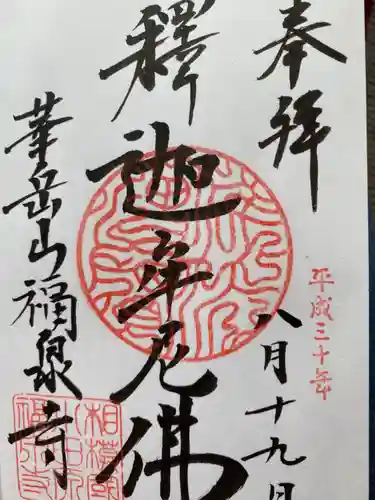 奉拝
平成三十年
八月十九日
釋迦牟尼佛
華岳山福泉寺